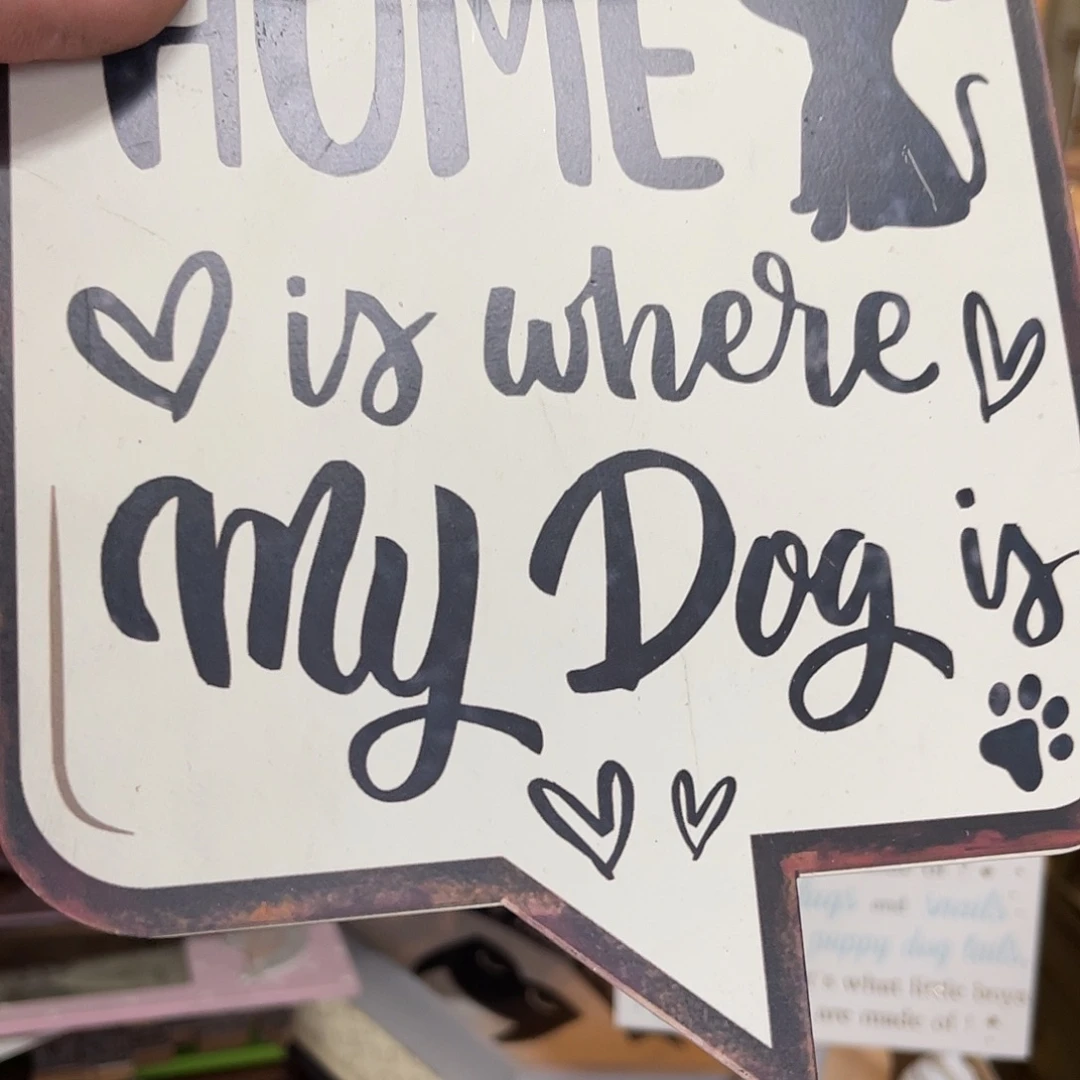 HOME
is where
My Dog is
and snails
puppy dog tails,
what little boys
are made of !